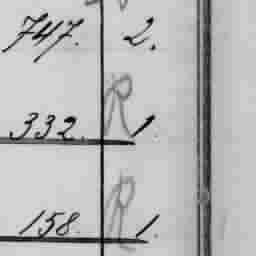 747. 2.
332. R 1.
158. R 1.